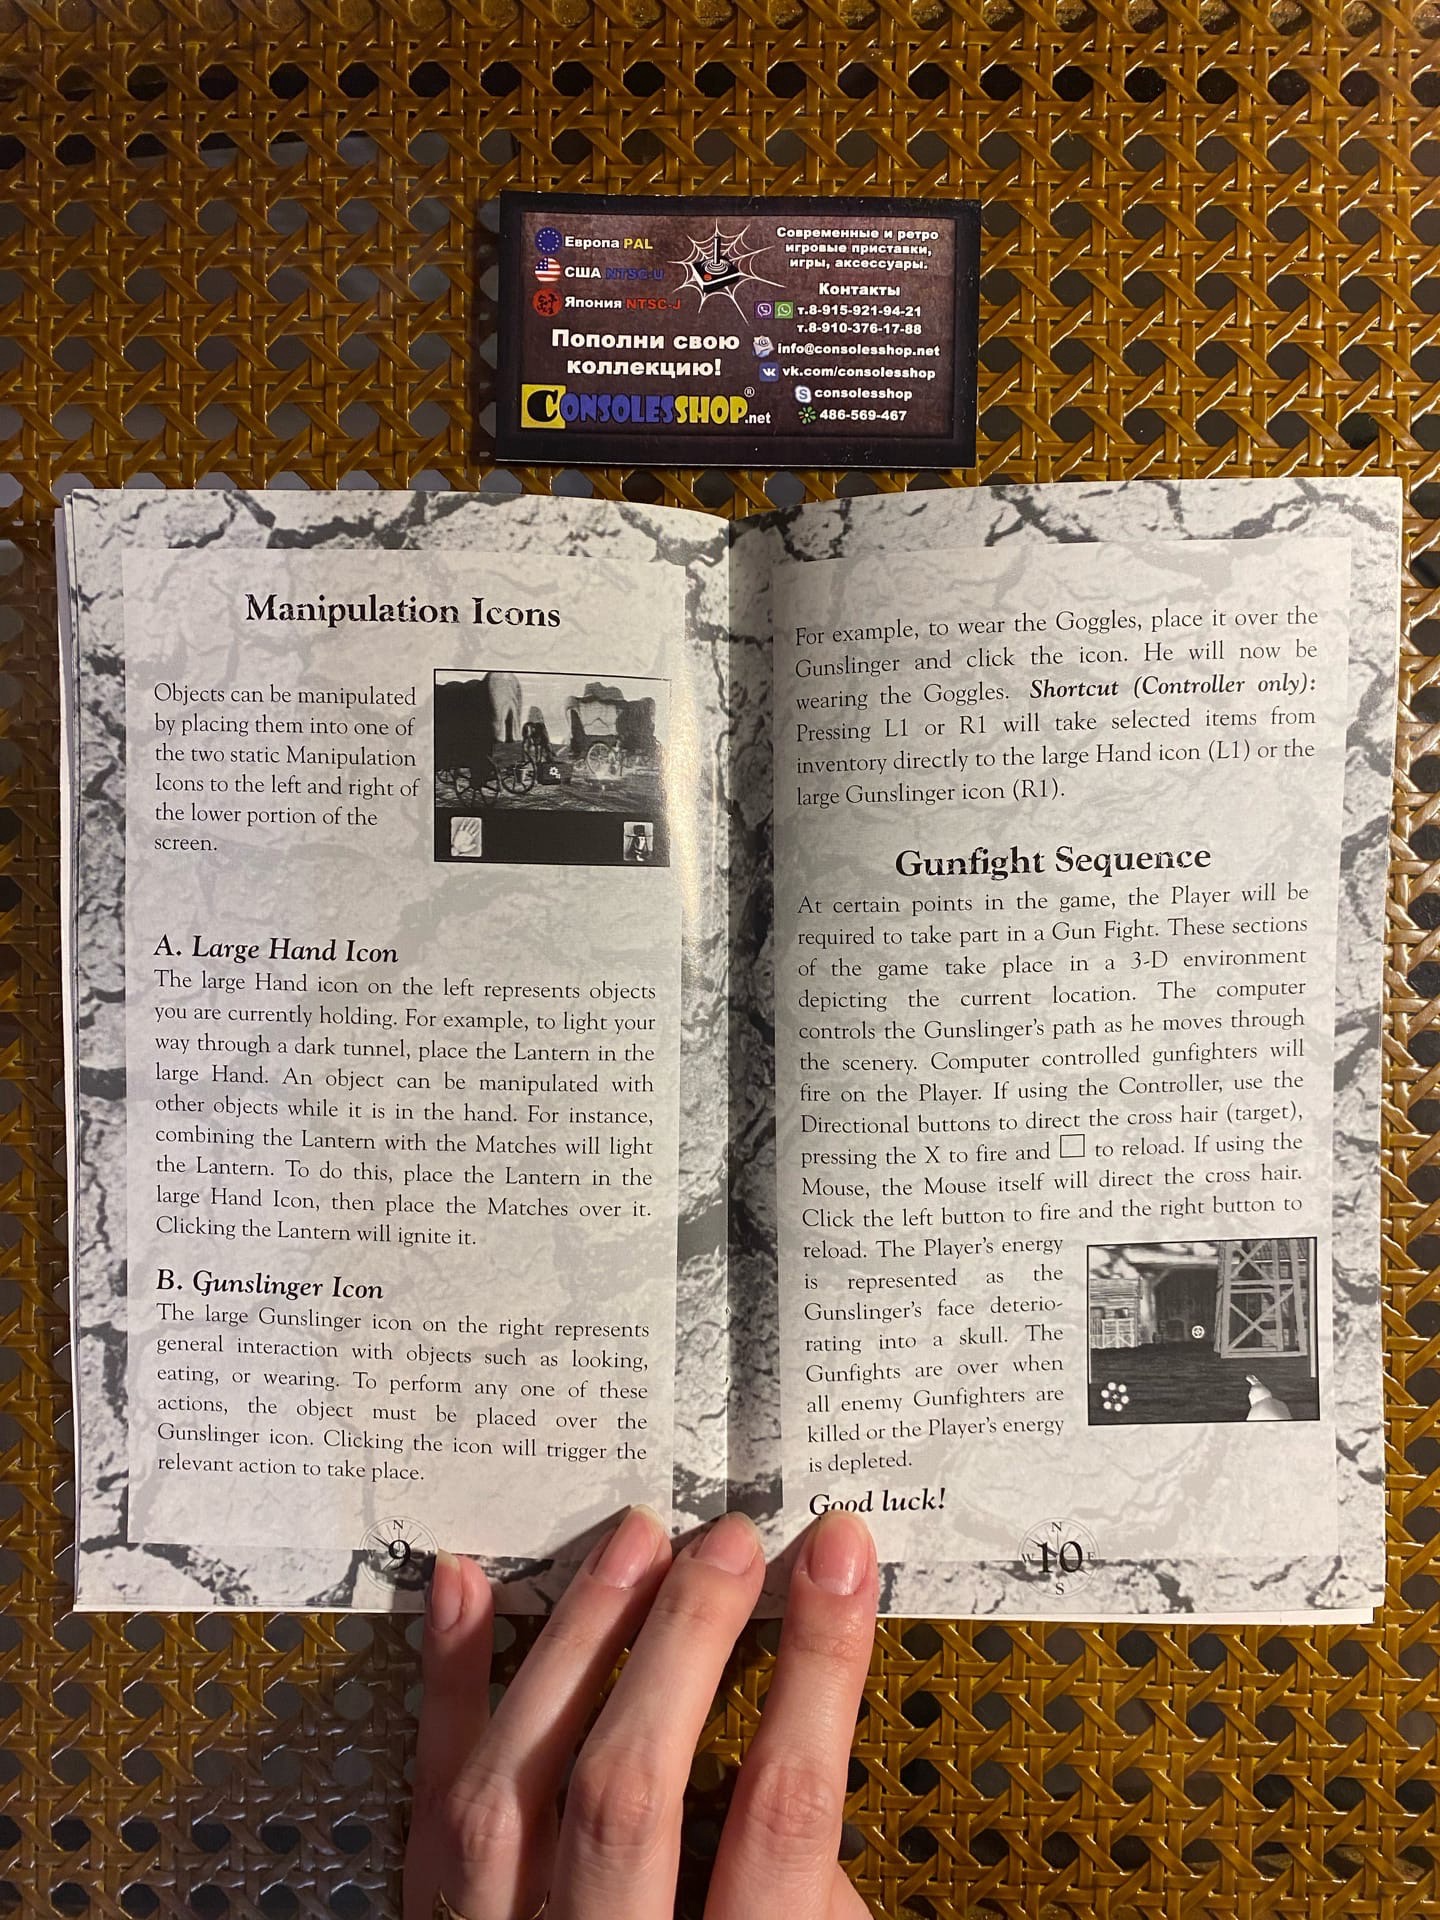 Европа PAL
США NTSC-U
Япония NTSC-J
Пополни свою
коллекцию!
CONSOLESSHOP.net
®
Современные и ретро
игровые приставки,
игры, аксессуары.
Контакты
т.8-915-921-94-21
т.8-910-376-17-88
info@consolesshop.net
vk.com/consolesshop
consolesshop
486-569-467
Manipulation Icons
Objects can be manipulated
by placing them into one of
the two static Manipulation
Icons to the left and right of
the lower portion of the
screen.
A. Large Hand Icon
The large Hand icon on the left represents objects
you are currently holding. For example, to light your
way through a dark tunnel, place the Lantern in the
large Hand. An object can be manipulated with
other objects while it is in the hand. For instance,
combining the Lantern with the Matches will light
the Lantern. To do this, place the Lantern in the
large Hand Icon, then place the Matches over it.
Clicking the Lantern will ignite it.
B. Gunslinger Icon
The large Gunslinger icon on the right represents
general interaction with objects such as looking,
eating, or wearing. To perform any one of these
actions, the object must be placed over the
Gunslinger icon. Clicking the icon will trigger the
relevant action to take place.
N
9
For example, to wear the Goggles, place it over the
Gunslinger and click the icon. He will now be
wearing the Goggles. Shortcut (Controller only):
Pressing L1 or R1 will take selected items from
inventory directly to the large Hand icon (L1) or the
large Gunslinger icon (R1).
Gunfight Sequence
At certain points in the game, the Player will be
required to take part in a Gun Fight. These sections
of the game take place in a 3-D environment
depicting the current location. The computer
controls the Gunslinger's path as he moves through
the scenery. Computer controlled gunfighters will
fire on the Player. If using the Controller, use the
Directional buttons to direct the cross hair (target),
pressing the X to fire and □ to reload. If using the
Mouse, the Mouse itself will direct the cross hair.
Click the left button to fire and the right button to
reload. The Player's energy
is represented as the
Gunslinger's face deterio-
rating into a skull. The
Gunfights are over when
all enemy Gunfighters are
killed or the Player's energy
is depleted.
Good luck!
N
W 10 E
S